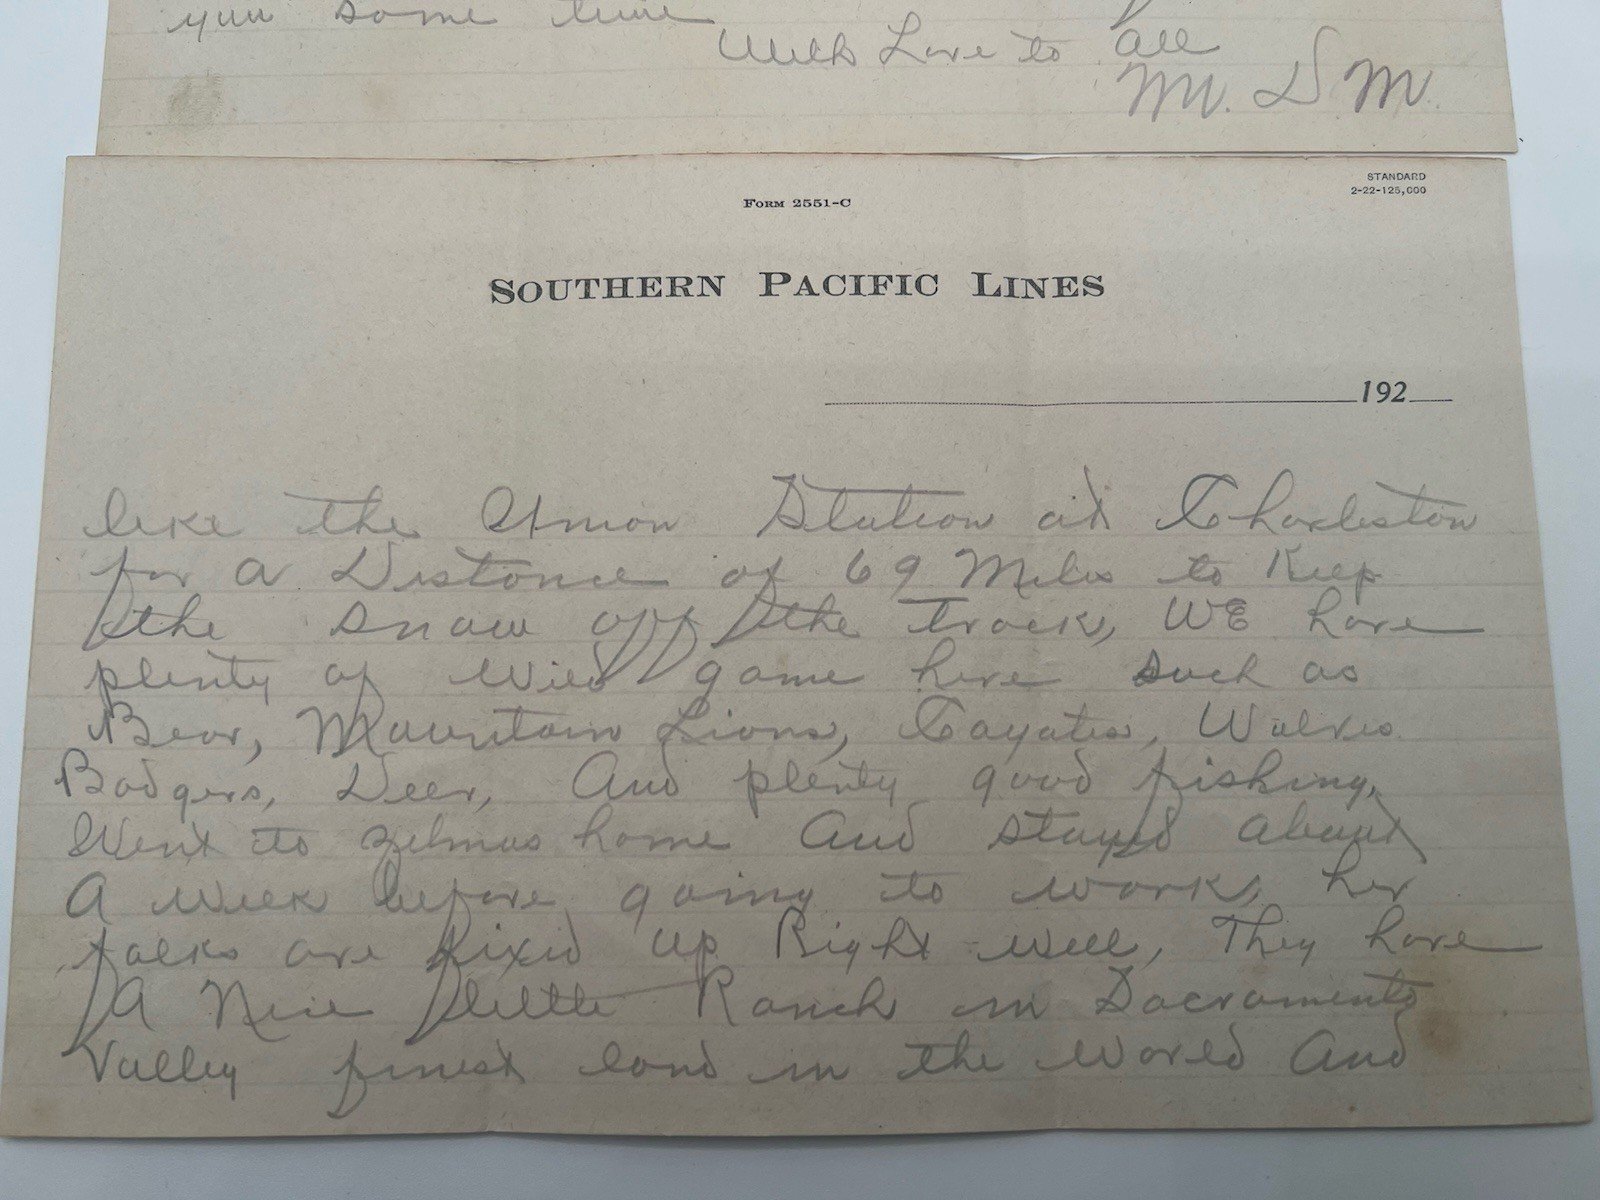 you some time
With Love to all
M. D M.
STANDARD
2-22-125,000
FORM 2551-C
SOUTHERN PACIFIC LINES
192
like the Union Station at Charleston
for a Distance of 69 Miles to Keep
the snow off the track, WE have
plenty of Wild game here such as
Bear, Mountain Lions, Cayotes, Wolves
Badgers, Deer, And plenty good fishing,
Went to Zelmas home And stayed about
A week before going to work, her
folks are fixed up Right well, They have
A Nice little Ranch in Sacramento
Valley finest land in the World And